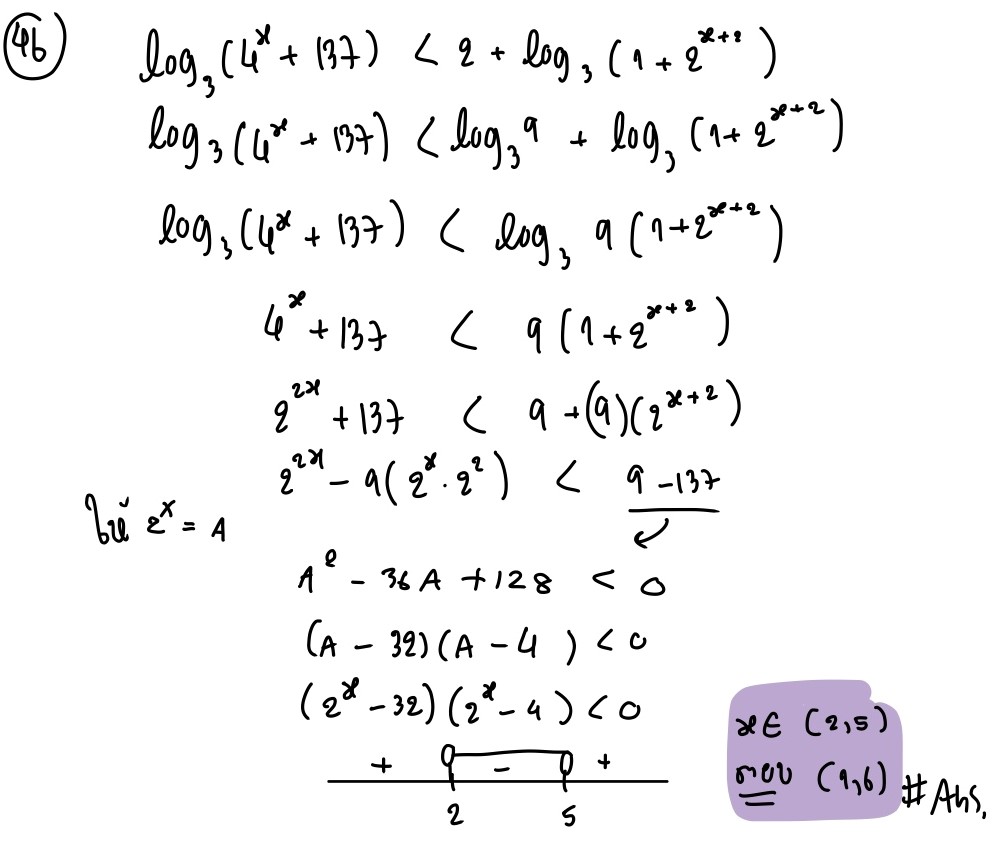 46
log₃(4ˣ + 137) < 2 + log₃(1 + 2ˣ⁺²)
log₃(4ˣ + 137) < log₃9 + log₃(1 + 2ˣ⁺²)
log₃(4ˣ + 137) < log₃ 9(1 + 2ˣ⁺²)
4ˣ + 137 < 9(1 + 2ˣ⁺²)
2²ˣ + 137 < 9 + (9)(2ˣ⁺²)
2²ˣ - 9(2ˣ · 2²) < 9 - 137
ให้ 2ˣ = A
A² - 36A + 128 < 0
(A - 32)(A - 4) < 0
(2ˣ - 32)(2ˣ - 4) < 0
+ - +
2 5
x ∈ (2,5)
ตอบ (1,6) # Ans.